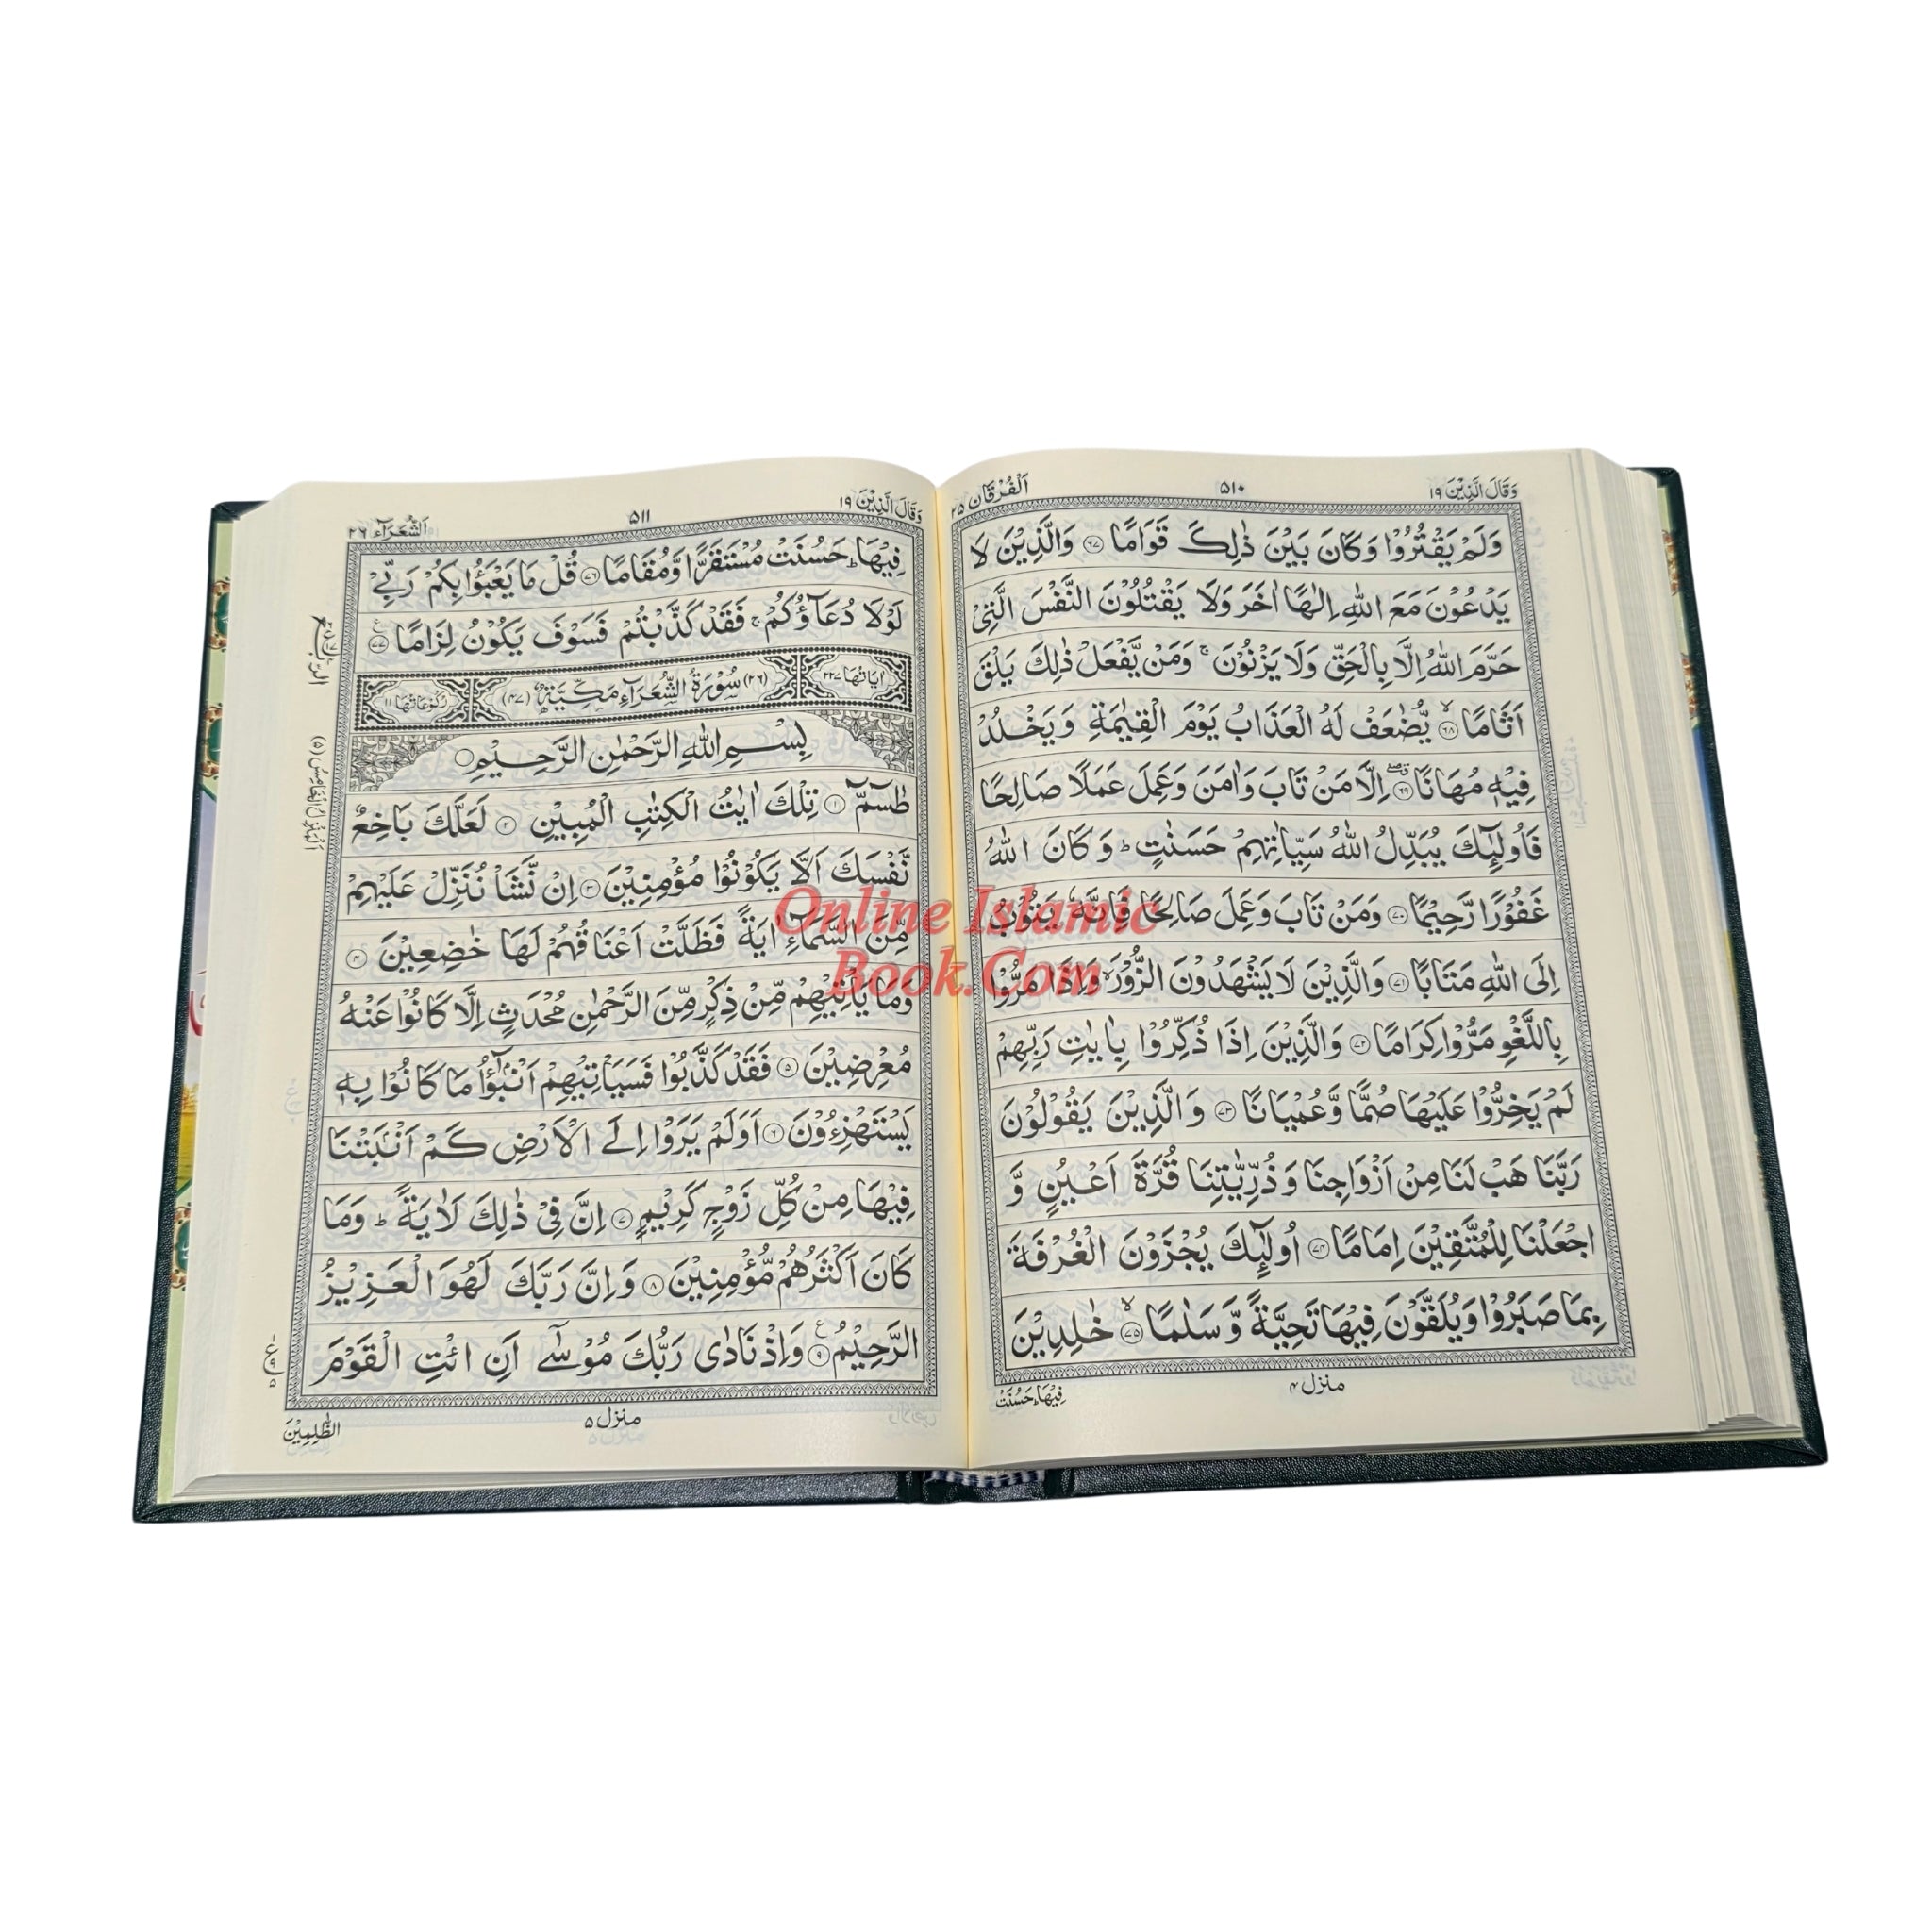 وَقَالَ الَّذِیْنَ ۱۹
۵۱۰
اَلْفُرْقَان ۲۵
وَلَمْ يَقْتُرُوْا وَكَانَ بَيْنَ ذٰلِكَ قَوَامًا ۶۷ وَالَّذِيْنَ لَا
يَدْعُوْنَ مَعَ اللّٰهِ اِلٰهًا اٰخَرَ وَلَا يَقْتُلُوْنَ النَّفْسَ الَّتِيْ
حَرَّمَ اللّٰهُ اِلَّا بِالْحَقِّ وَلَا يَزْنُوْنَ ۚ وَمَنْ يَّفْعَلْ ذٰلِكَ يَلْقَ
اَثَامًا ۶۸ۙ يُّضٰعَفْ لَهُ الْعَذَابُ يَوْمَ الْقِيٰمَةِ وَيَخْلُدْ
فِيْهٖ مُهَانًا ۶۹ اِلَّا مَنْ تَابَ وَاٰمَنَ وَعَمِلَ عَمَلًا صَالِحًا
فَاُولٰٓئِكَ يُبَدِّلُ اللّٰهُ سَيِّاٰتِهِمْ حَسَنٰتٍ ؕ وَكَانَ اللّٰهُ
غَفُوْرًا رَّحِيْمًا ۷۰ وَمَنْ تَابَ وَعَمِلَ صَالِحًا فَاِنَّهٗ يَتُوْبُ
اِلَى اللّٰهِ مَتَابًا ۷۱ وَالَّذِيْنَ لَا يَشْهَدُوْنَ الزُّوْرَ ۙ وَاِذَا مَرُّوْا
بِاللَّغْوِ مَرُّوْا كِرَامًا ۷۲ وَالَّذِيْنَ اِذَا ذُكِّرُوْا بِاٰيٰتِ رَبِّهِمْ
لَمْ يَخِرُّوْا عَلَيْهَا صُمًّا وَّعُمْيَانًا ۷۳ وَالَّذِيْنَ يَقُوْلُوْنَ
رَبَّنَا هَبْ لَنَا مِنْ اَزْوَاجِنَا وَذُرِّيّٰتِنَا قُرَّةَ اَعْيُنٍ وَّ
اجْعَلْنَا لِلْمُتَّقِيْنَ اِمَامًا ۷۴ اُولٰٓئِكَ يُجْزَوْنَ الْغُرْفَةَ
بِمَا صَبَرُوْا وَيُلَقَّوْنَ فِيْهَا تَحِيَّةً وَّسَلٰمًا ۷۵ۙ خٰلِدِيْنَ
منزل ۴
فِيْهَا ؕ حَسُنَتْ
وَقَالَ الَّذِیْنَ ۱۹
۵۱۱
اَلشُّعَرَآء ۲۶
فِيْهَا ؕ حَسُنَتْ مُسْتَقَرًّا وَّمُقَامًا ۷۶ قُلْ مَا يَعْبَؤُا بِكُمْ رَبِّيْ
لَوْلَا دُعَآؤُكُمْ ۚ فَقَدْ كَذَّبْتُمْ فَسَوْفَ يَكُوْنُ لِزَامًا ۷۷
اٰيَاتُهَا ۲۲۷
(۲۶) سُوْرَةُ الشُّعَرَآءِ مَكِّيَّةٌ (۴۷)
رُكُوْعَاتُهَا ۱۱
بِسْمِ اللّٰهِ الرَّحْمٰنِ الرَّحِيْمِ
طٰسٓمّٓ ۱ تِلْكَ اٰيٰتُ الْكِتٰبِ الْمُبِيْنِ ۲ لَعَلَّكَ بَاخِعٌ
نَّفْسَكَ اَلَّا يَكُوْنُوْا مُؤْمِنِيْنَ ۳ اِنْ نَّشَاْ نُنَزِّلْ عَلَيْهِمْ
مِّنَ السَّمَآءِ اٰيَةً فَظَلَّتْ اَعْنَاقُهُمْ لَهَا خٰضِعِيْنَ ۴
وَمَا يَاْتِيْهِمْ مِّنْ ذِكْرٍ مِّنَ الرَّحْمٰنِ مُحْدَثٍ اِلَّا كَانُوْا عَنْهُ
مُعْرِضِيْنَ ۵ فَقَدْ كَذَّبُوْا فَسَيَاْتِيْهِمْ اَنْۢبٰٓؤُا مَا كَانُوْا بِهٖ
يَسْتَهْزِءُوْنَ ۶ اَوَلَمْ يَرَوْا اِلَى الْاَرْضِ كَمْ اَنْۢبَتْنَا
فِيْهَا مِنْ كُلِّ زَوْجٍ كَرِيْمٍ ۷ اِنَّ فِيْ ذٰلِكَ لَاٰيَةً ؕ وَمَا
كَانَ اَكْثَرُهُمْ مُّؤْمِنِيْنَ ۸ وَاِنَّ رَبَّكَ لَهُوَ الْعَزِيْزُ
الرَّحِيْمُ ۹ وَاِذْ نَادٰى رَبُّكَ مُوْسٰٓى اَنِ ائْتِ الْقَوْمَ
منزل ۵
الظّٰلِمِيْنَ
اَلْمَنْزِلُ الْخَامِسُ (۵)
ع ۹ ۵
Online Islamic
Book.Com